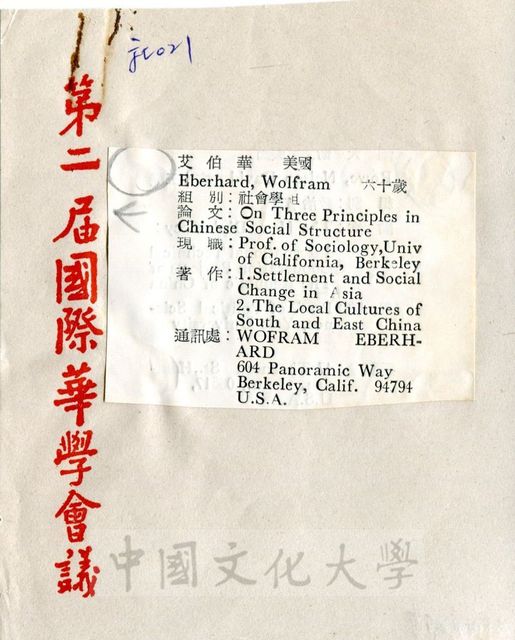 第二屆國際華學會議
艾伯華 美國
Eberhard, Wolfram 六十歲
組別：社會學組
論文：On Three Principles in
Chinese Social Structure
現職：Prof. of Sociology,Univ
of California, Berkeley
著作：1.Settlement and Social
Change in Asia
2.The Local Cultures of
South and East China
通訊處：WOFRAM EBERH-
ARD
604 Panoramic Way
Berkeley, Calif. 94794
U.S.A.
中國文化大學